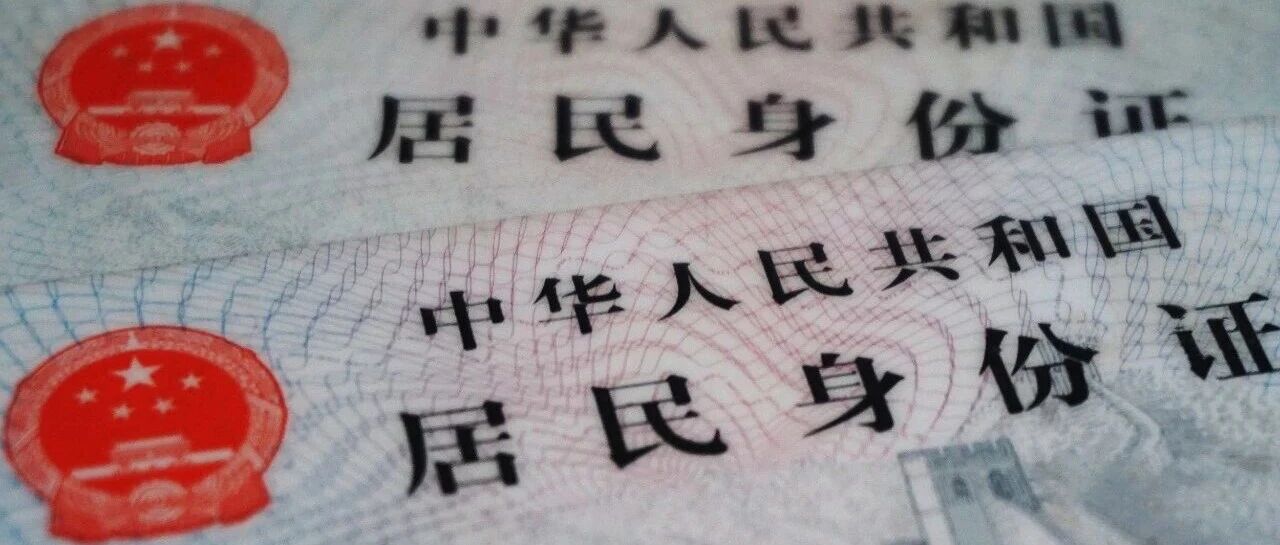 中华人民共和国
居民身份证
中华人民共和国
居民身份证